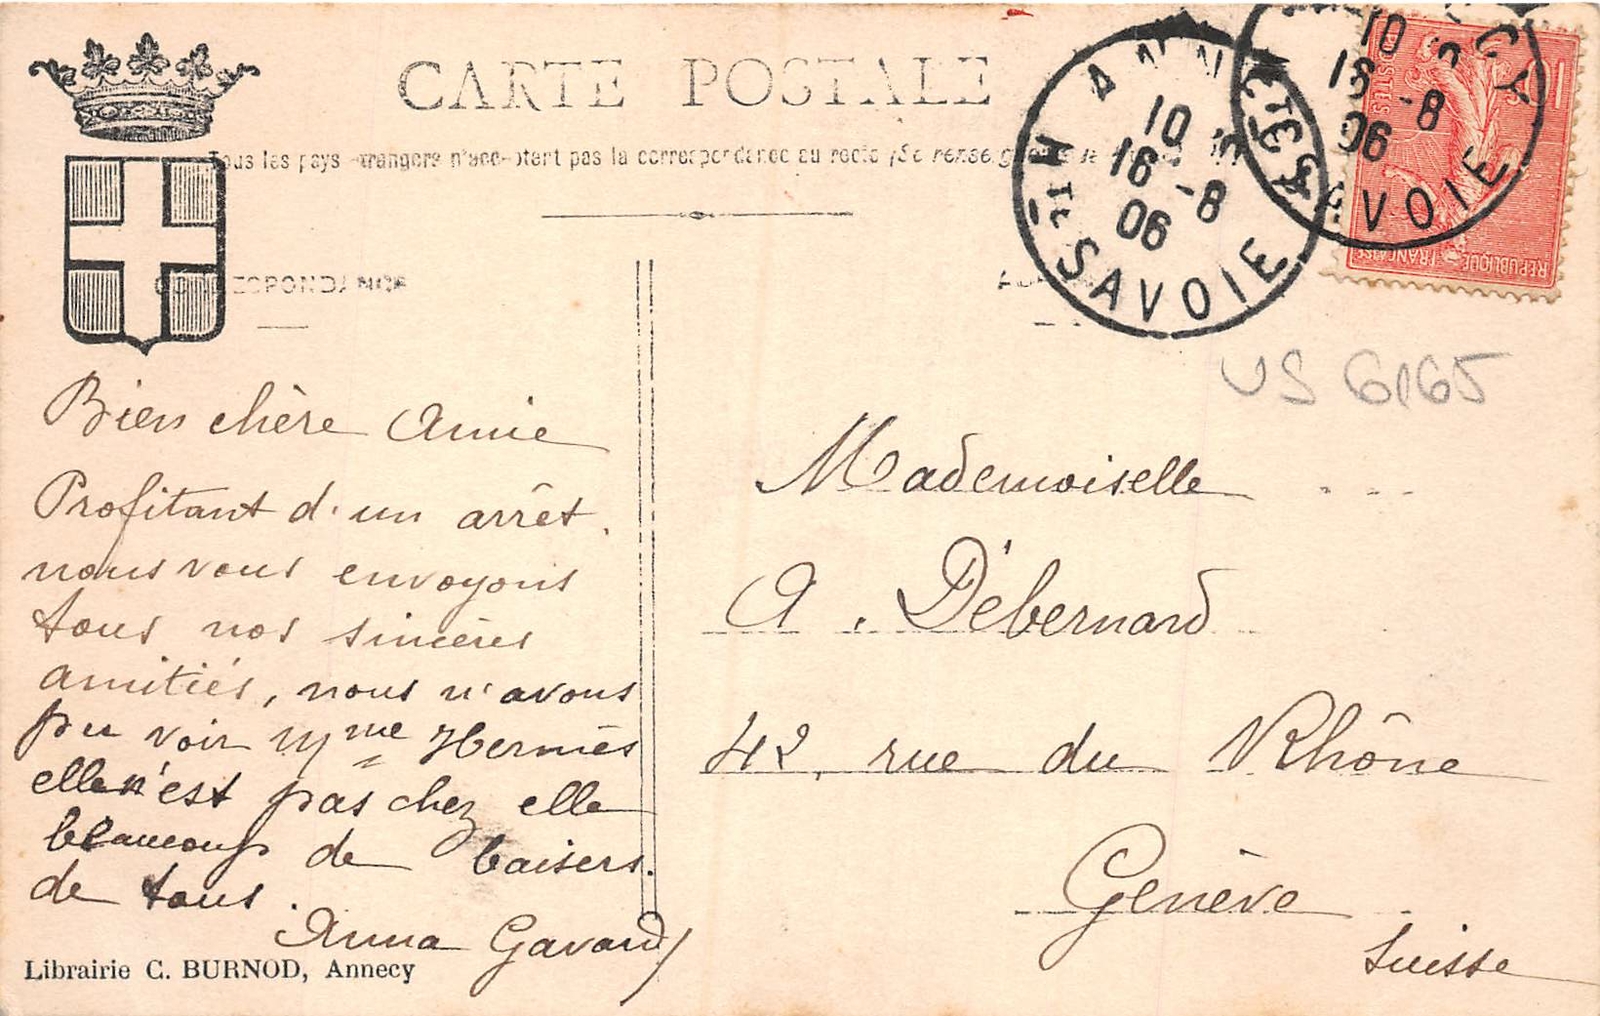 CARTE POSTALE
Tous les pays étrangers n'acceptant pas la correspondance au recto (Se renseigner
CORRESPONDANCE
ANNECY
10
16 -8
06
HTE SAVOIE
10
16 -8
06
SAVOIE
POSTES
REPUBLIQUE FRANÇAISE
US 6165
Bien chère Amie
Profitant d'un arrêt.
nous vous envoyons
tous nos sincères
amitiés, nous n'avons
pu voir Mme Hermès
elle n'est pas chez elle
beaucoup de baisers.
de tous.
Anna Gavard
Librairie C. BURNOD, Annecy
Mademoiselle
A. Débernard
42, rue du Rhône
Genève
Suisse